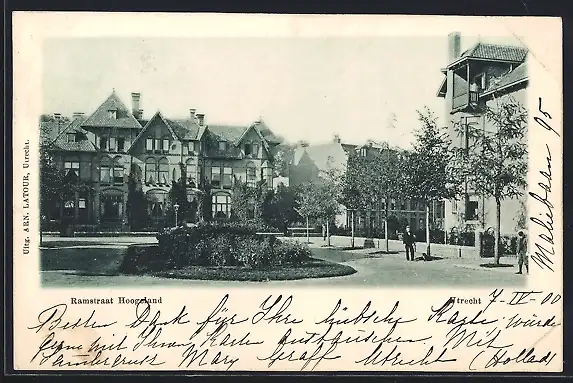 Uitg. ARN. LATOUR, Utrecht.
Maliebaan 95
Ramstraat Hoogeland
Utrecht 7-IV-00
Besten Dank für Ihre hübsche Karte, würde
gerne mit Ihnen Karten austauschen. Mit
Kartengruss Mary Graff Utrecht (Holland)